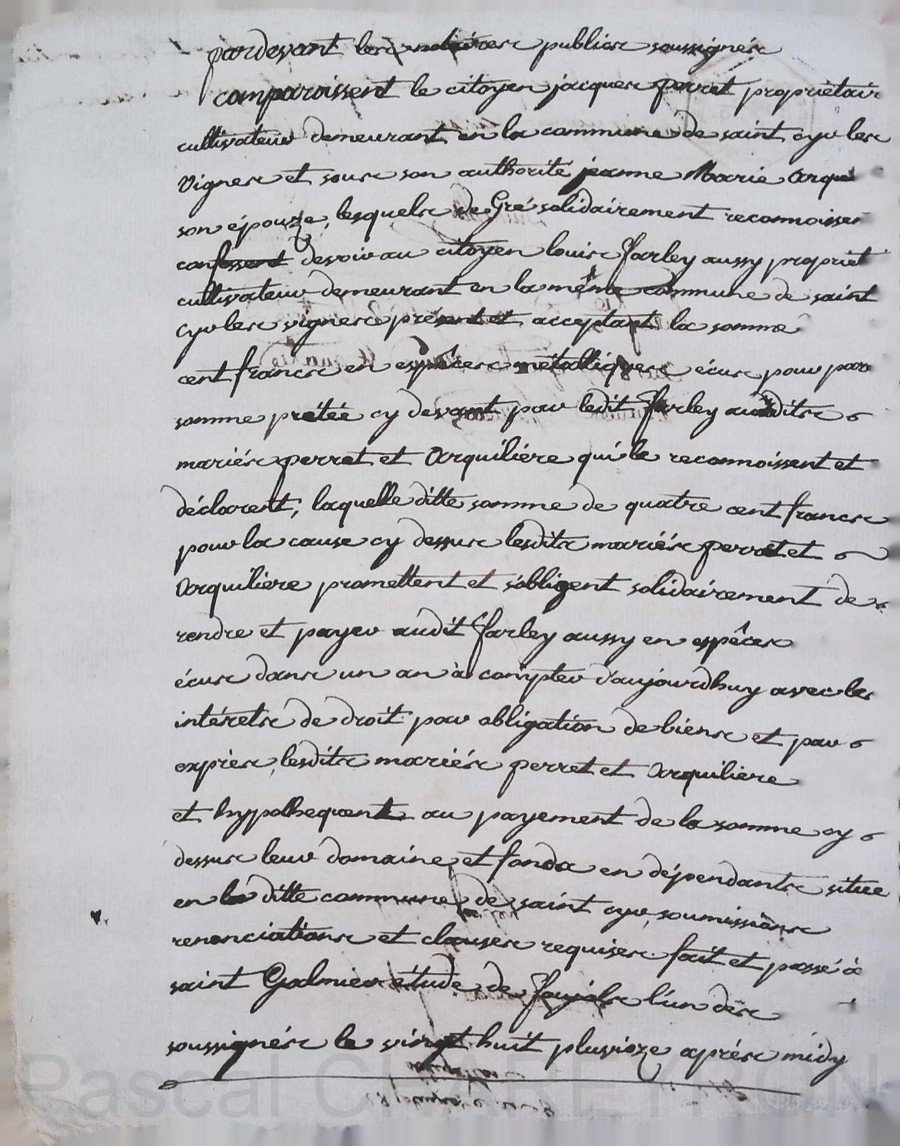 pardevant les notaires publics soussignés
comparoissent le citoyen jacques perret propriétair
cultivateur demeurant en la commune de saint cyr les
vignes et sous son authorité jeanne Marie arqui
son épouze, lesquels de Gré solidairement reconnoissen
confessent devoir au citoyen louis farley aussy propriet
cultivateur demeurant en la même commune de saint
cyr les vignes présent et acceptant la somme
cent francs en espèces métalliques écus pour par
somme prétée cy devant par ledit farley auxdits
mariés perret et arquiliére qui le reconnoissent et
déclarent, laquelle ditte somme de quatre cent francs
pour la cause cy dessus lesdits mariés perret et
arquiliére promettent et s'obligent solidairement de
rendre et payer audit farley aussy en espèces
écus dans un an à compter d'aujourdhuy avec les
intérets de droit par obligation de biens et par
exprès lesdits mariés perret et arquiliere
et hypothequent au payement de la somme cy
dessus leur domaine et fonds en dépendants situé
en la ditte commune de saint cyr, soumissions
renonciations et clauses requises fait et passé à
saint Galmier étude de l'un des
soussignés le vingt huit pluvioze après midy
Pascal